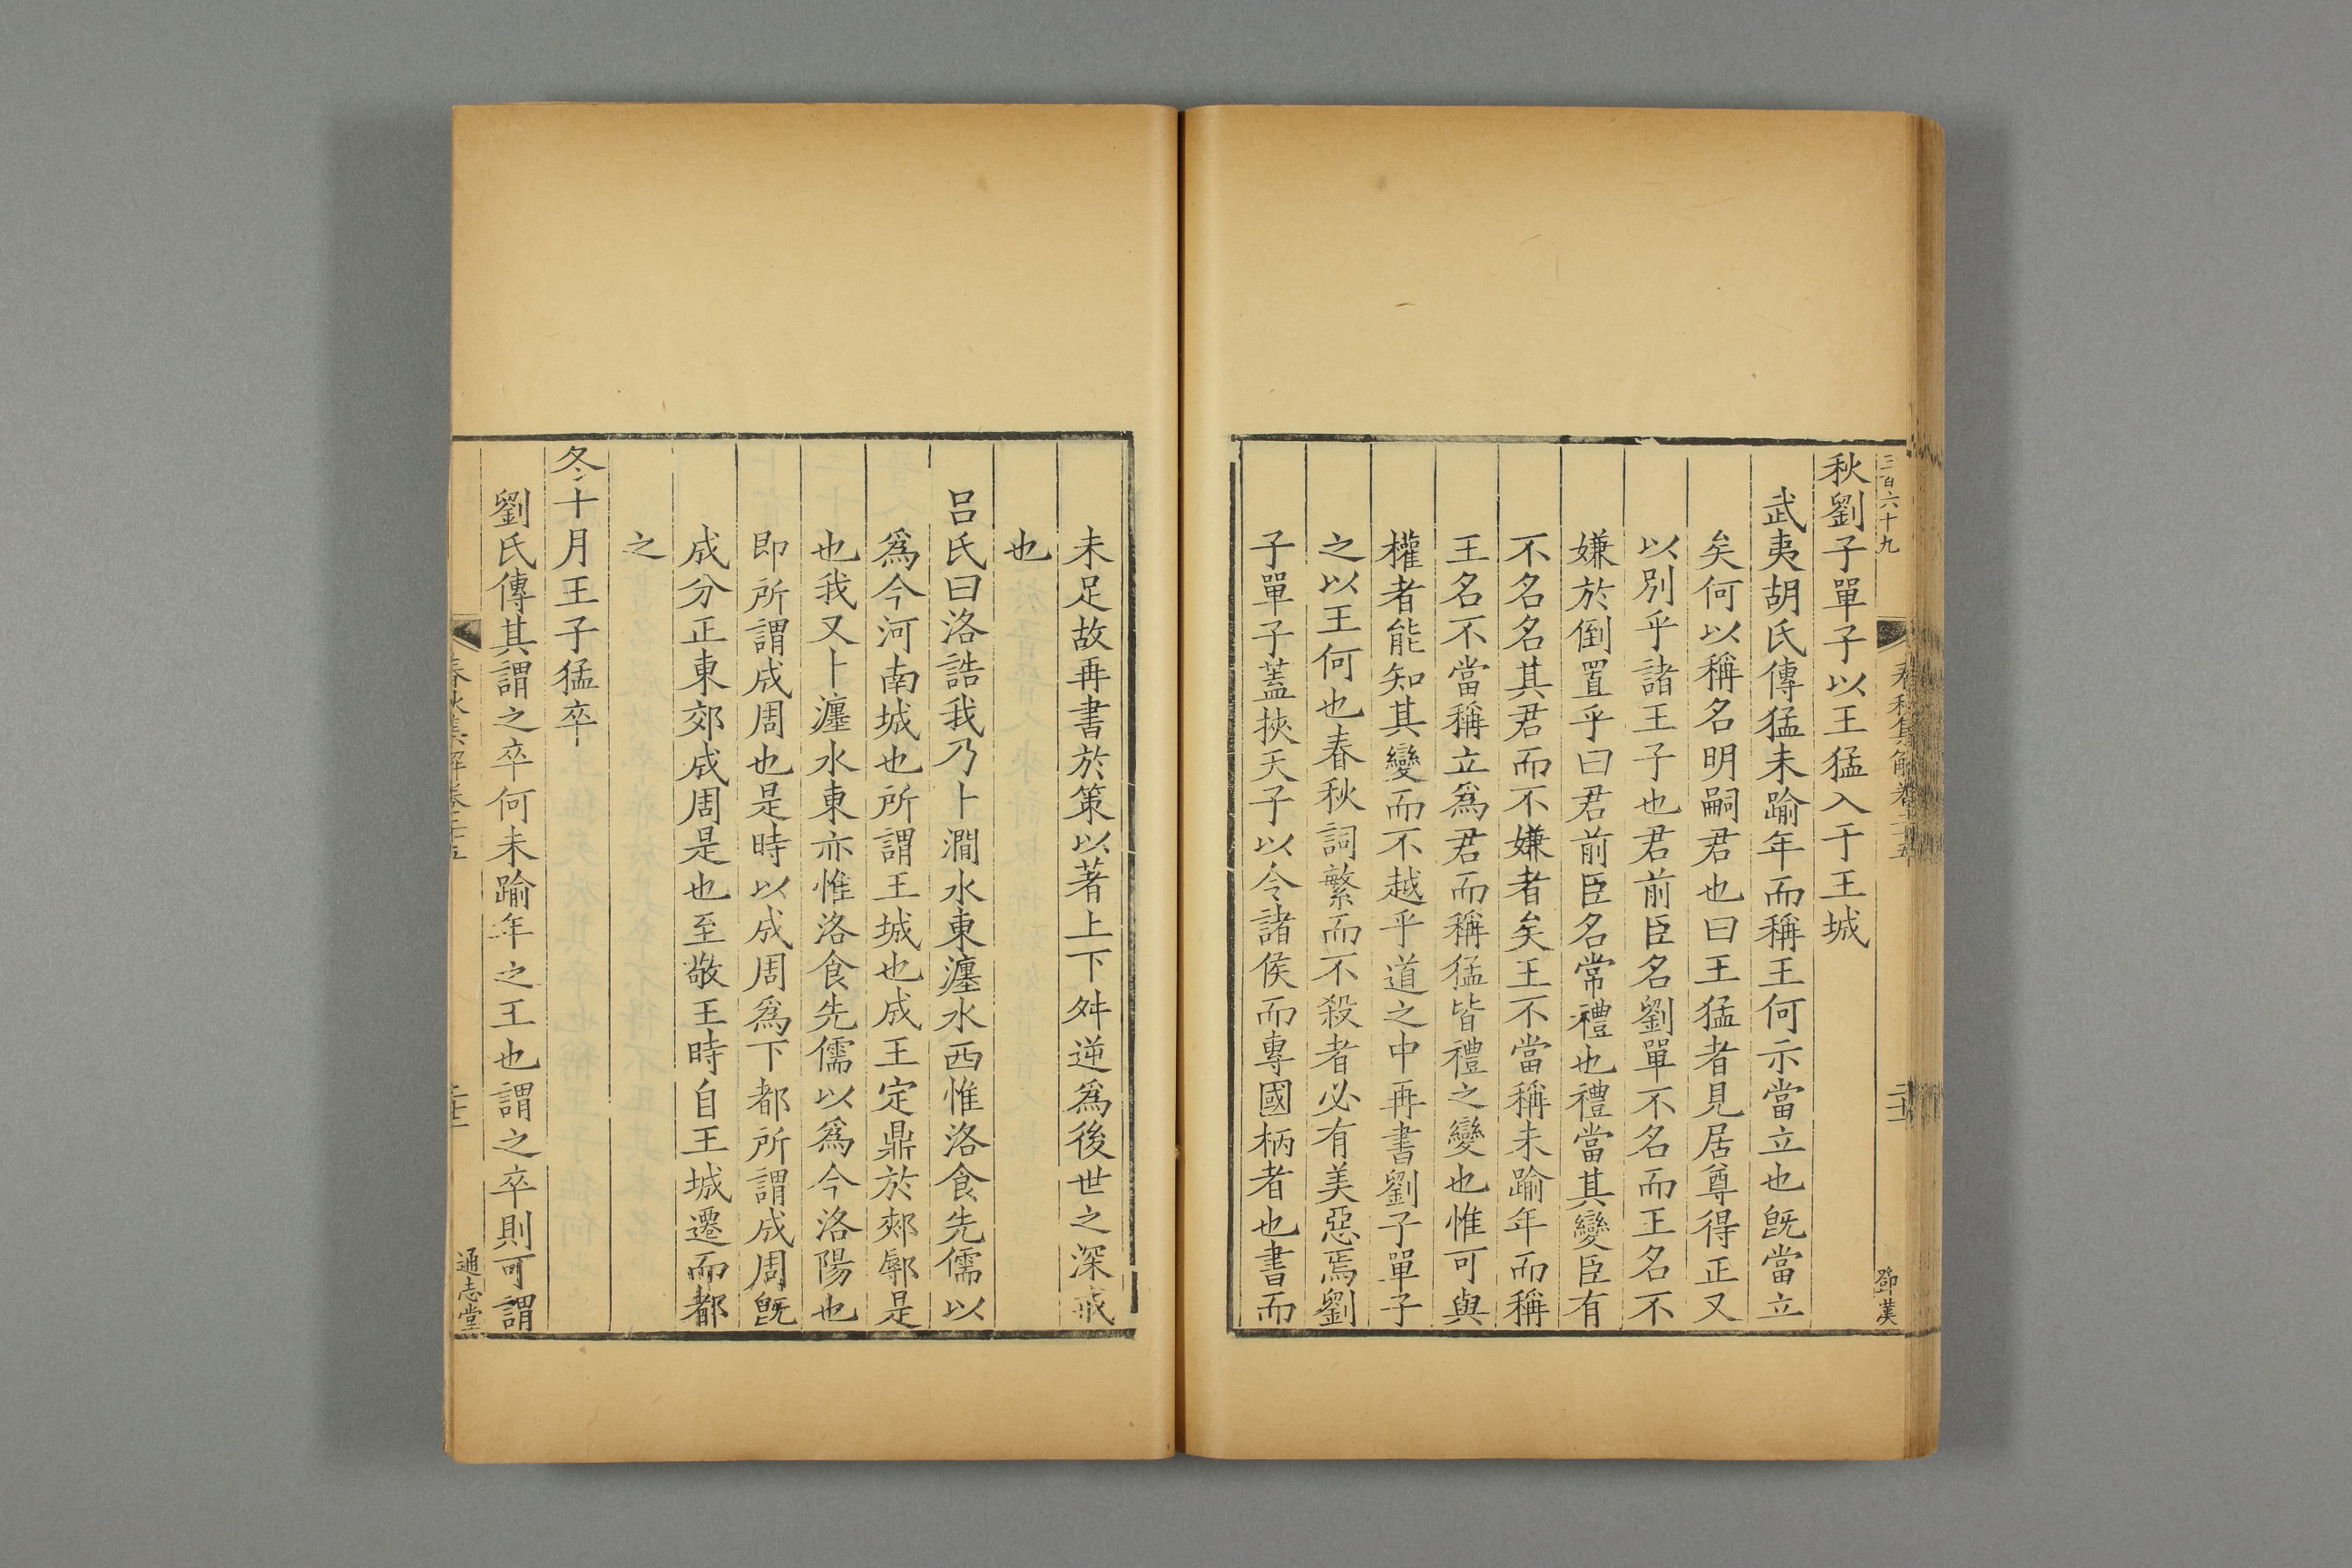 三百六十九
鄧漢
秋劉子單子以王猛入于王城
武夷胡氏傳猛未踰年而稱王何示當立也旣當立
矣何以稱名明嗣君也曰王猛者見居尊得正又
以別乎諸王子也君前臣名劉單不名而王名不
嫌於倒置乎曰君前臣名常禮也禮當其變臣有
不名名其君而不嫌者矣王不當稱未踰年而稱
王名不當稱立爲君而稱猛皆禮之變也惟可與
權者能知其變而不越乎道之中再書劉子單子
之以王何也春秋詞繁而不殺者必有美惡焉劉
子單子蓋挾天子以令諸侯而專國柄者也書而
未足故再書於策以著上下舛逆爲後世之深戒
也
呂氏曰洛誥我乃卜澗水東瀍水西惟洛食先儒以
爲今河南城也所謂王城也成王定鼎於郟鄏是
也我又卜瀍水東亦惟洛食先儒以爲今洛陽也
即所謂成周也是時以成周爲下都所謂成周旣
成分正東郊成周是也至敬王時自王城遷而都
之
冬十月王子猛卒
劉氏傳其謂之卒何未踰年之王也謂之卒則可謂
通志堂